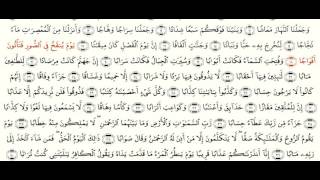 وَجَعَلْنَا ٱلنَّهَارَ مَعَاشًا ۝ وَبَنَيْنَا فَوْقَكُمْ سَبْعًا شِدَادًا ۝ وَجَعَلْنَا سِرَاجًا وَهَّاجًا ۝ وَأَنزَلْنَا مِنَ ٱلْمُعْصِرَٰتِ مَآءً
ثَجَّاجًا ۝ لِّنُخْرِجَ بِهِۦ حَبًّا وَنَبَاتًا ۝ وَجَنَّٰتٍ أَلْفَافًا ۝ إِنَّ يَوْمَ ٱلْفَصْلِ كَانَ مِيقَٰتًا ۝ يَوْمَ يُنفَخُ فِى ٱلصُّورِ فَتَأْتُونَ
أَفْوَاجًا ۝ وَفُتِحَتِ ٱلسَّمَآءُ فَكَانَتْ أَبْوَٰبًا ۝ وَسُيِّرَتِ ٱلْجِبَالُ فَكَانَتْ سَرَابًا ۝ إِنَّ جَهَنَّمَ كَانَتْ مِرْصَادًا ۝ لِّلطَّٰغِينَ
مَـَٔابًا ۝ لَّٰبِثِينَ فِيهَآ أَحْقَابًا ۝ لَّا يَذُوقُونَ فِيهَا بَرْدًا وَلَا شَرَابًا ۝ إِلَّا حَمِيمًا وَغَسَّاقًا ۝ جَزَآءً
وِفَاقًا ۝ إِنَّهُمْ كَانُوا۟ لَا يَرْجُونَ حِسَابًا ۝ وَكَذَّبُوا۟ بِـَٔايَٰتِنَا كِذَّابًا ۝ وَكُلَّ شَىْءٍ أَحْصَيْنَٰهُ كِتَٰبًا ۝ فَذُوقُوا۟ فَلَن نَّزِيدَكُمْ إِلَّا عَذَابًا
۝ إِنَّ لِلْمُتَّقِينَ مَفَازًا ۝ حَدَآئِقَ وَأَعْنَٰبًا ۝ وَكَوَاعِبَ أَتْرَابًا ۝ وَكَأْسًا دِهَاقًا ۝ لَّا يَسْمَعُونَ فِيهَا لَغْوًا وَلَا كِذَّٰبًا
۝ جَزَآءً مِّن رَّبِّكَ عَطَآءً حِسَابًا ۝ رَّبِّ ٱلسَّمَٰوَٰتِ وَٱلْأَرْضِ وَمَا بَيْنَهُمَا ٱلرَّحْمَٰنِ لَا يَمْلِكُونَ مِنْهُ خِطَابًا ۝ يَوْمَ
يَقُومُ ٱلرُّوحُ وَٱلْمَلَٰٓئِكَةُ صَفًّا لَّا يَتَكَلَّمُونَ إِلَّا مَنْ أَذِنَ لَهُ ٱلرَّحْمَٰنُ وَقَالَ صَوَابًا ۝ ذَٰلِكَ ٱلْيَوْمُ ٱلْحَقُّ فَمَن شَآءَ ٱتَّخَذَ إِلَىٰ
رَبِّهِۦ مَـَٔابًا ۝ إِنَّآ أَنذَرْنَٰكُمْ عَذَابًا قَرِيبًا يَوْمَ يَنظُرُ ٱلْمَرْءُ مَا قَدَّمَتْ يَدَاهُ وَيَقُولُ ٱلْكَافِرُ يَٰلَيْتَنِى كُنتُ تُرَٰبًا ۝